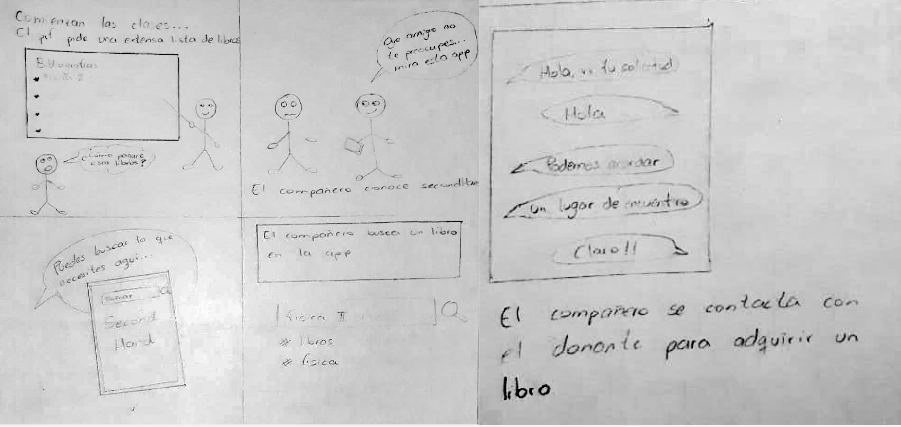 Comienzan las clases...
El pf pide una extensa lista de libros
Física 2
¿Cómo pagaré
esos libros?
Oye amigo no
te preocupes...
mira esta app
El compañero conoce
Puedes buscar lo que
necesites aquí...
Buscar
Second
Hand
El compañero busca un libro
en la app
física II
# libros
# física
Hola, vi tu solicitud
Hola
Podemos acordar
un lugar de encuentro
Claro!!
El compañero se contacta con
el donante para adquirir un
libro